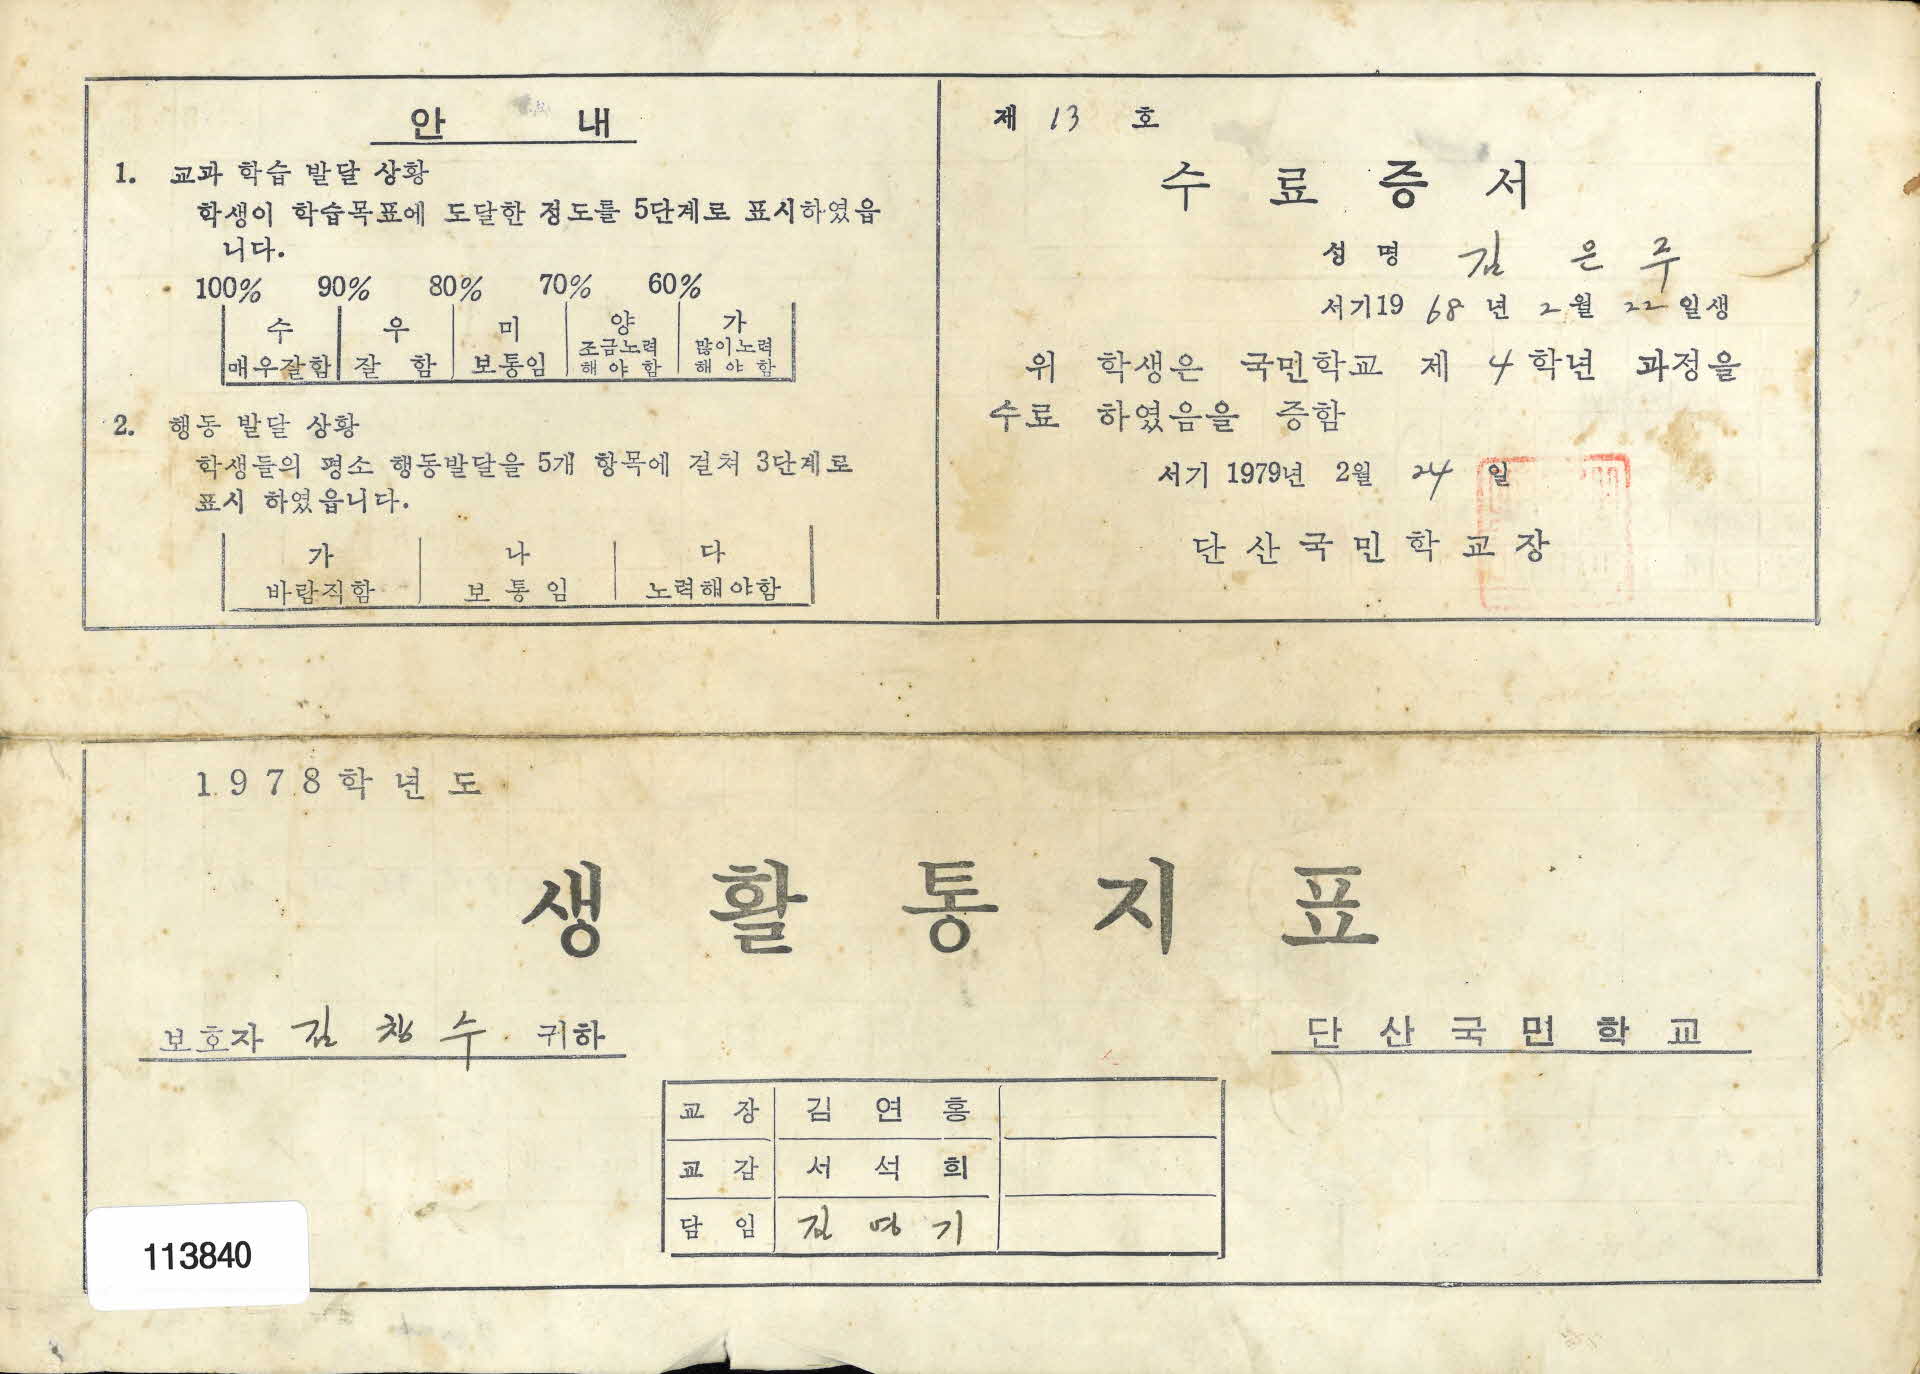 안 내
1. 교과 학습 발달 상황
학생이 학습목표에 도달한 정도를 5단계로 표시하였읍
니다.
100% 90% 80% 70% 60%
수 우 미 양 가
매우잘함 잘 함 보통임 조금노력 해야함 많이노력 해야함
2. 행동 발달 상황
학생들의 평소 행동발달을 5개 항목에 걸쳐 3단계로
표시 하였읍니다.
가 나 다
바람직함 보통임 노력해야함
제 13 호
수료증서
성명 김은주
서기19 68년 2월 22일생
위 학생은 국민학교 제 4학년 과정을
수료 하였음을 증함
서기 1979년 2월 24일
단산국민학교장
1978학년도
생활통지표
보호자 김창수 귀하
단산국민학교
교장 김연홍
교감 서석희
담임 김영기
113840